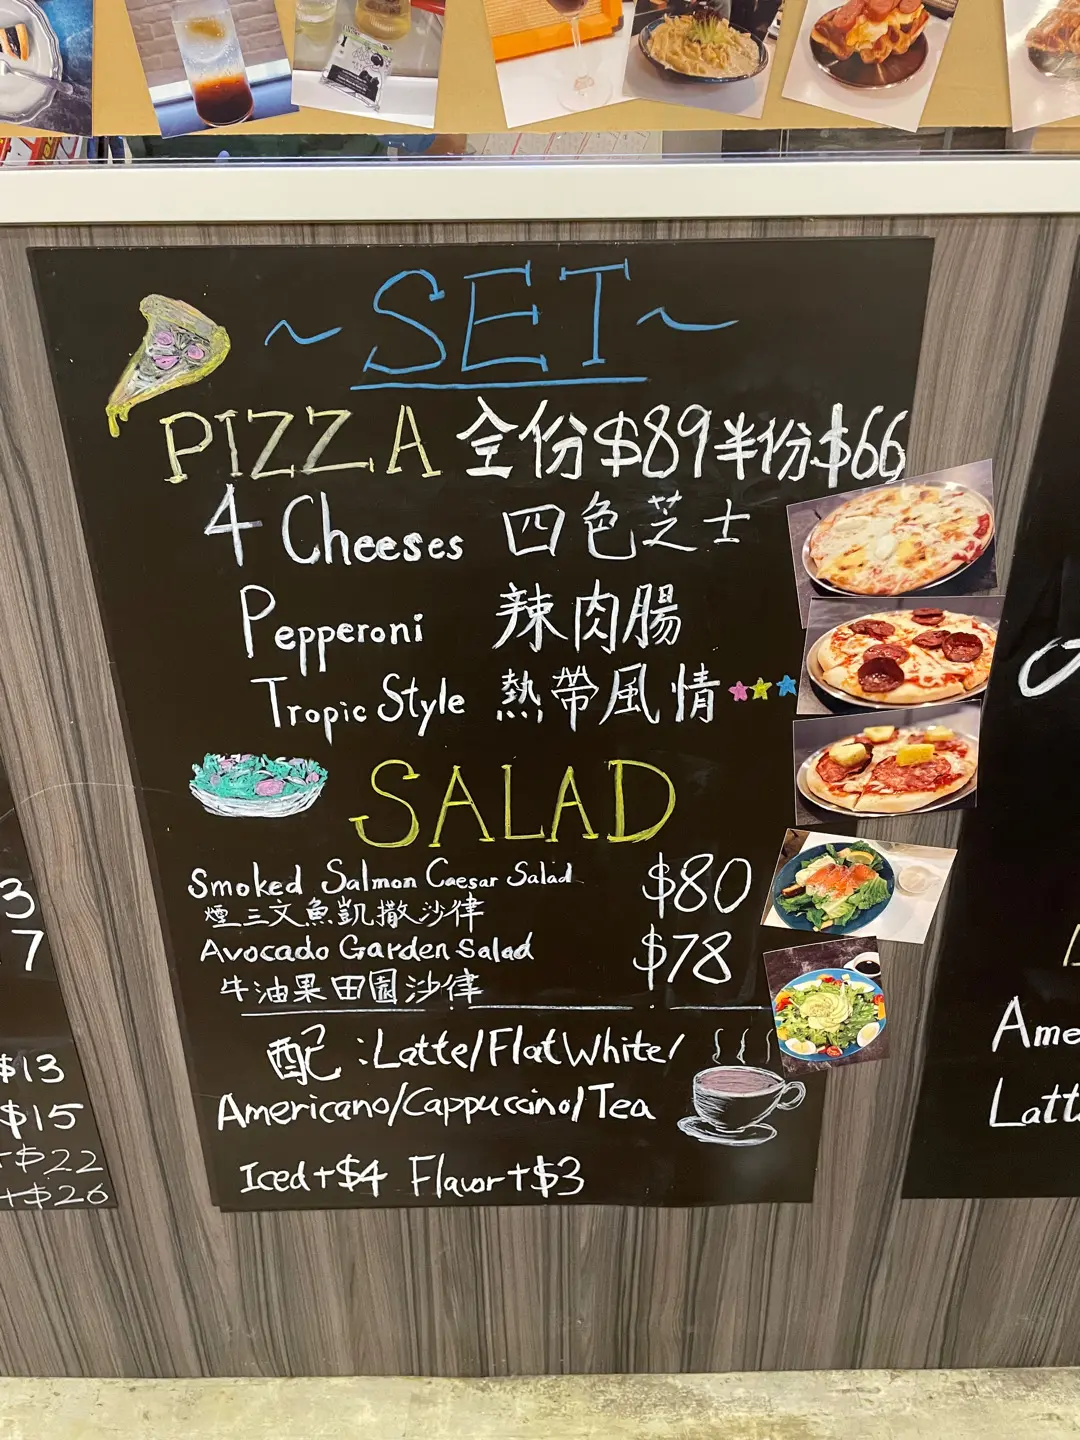 ~SET~
PIZZA 全份$89半份$66
4 Cheeses 四色芝士
Pepperoni 辣肉腸
Tropic Style 熱帶風情
SALAD
Smoked Salmon Caesar Salad $80
煙三文魚凱撒沙律
Avocado Garden Salad $78
牛油果田園沙律
配:Latte/Flat White/
Americano/Cappuccino/Tea
Iced+$4 Flavor+$3
3
7
$13
$15
+$22
+$26
Ame
Latt